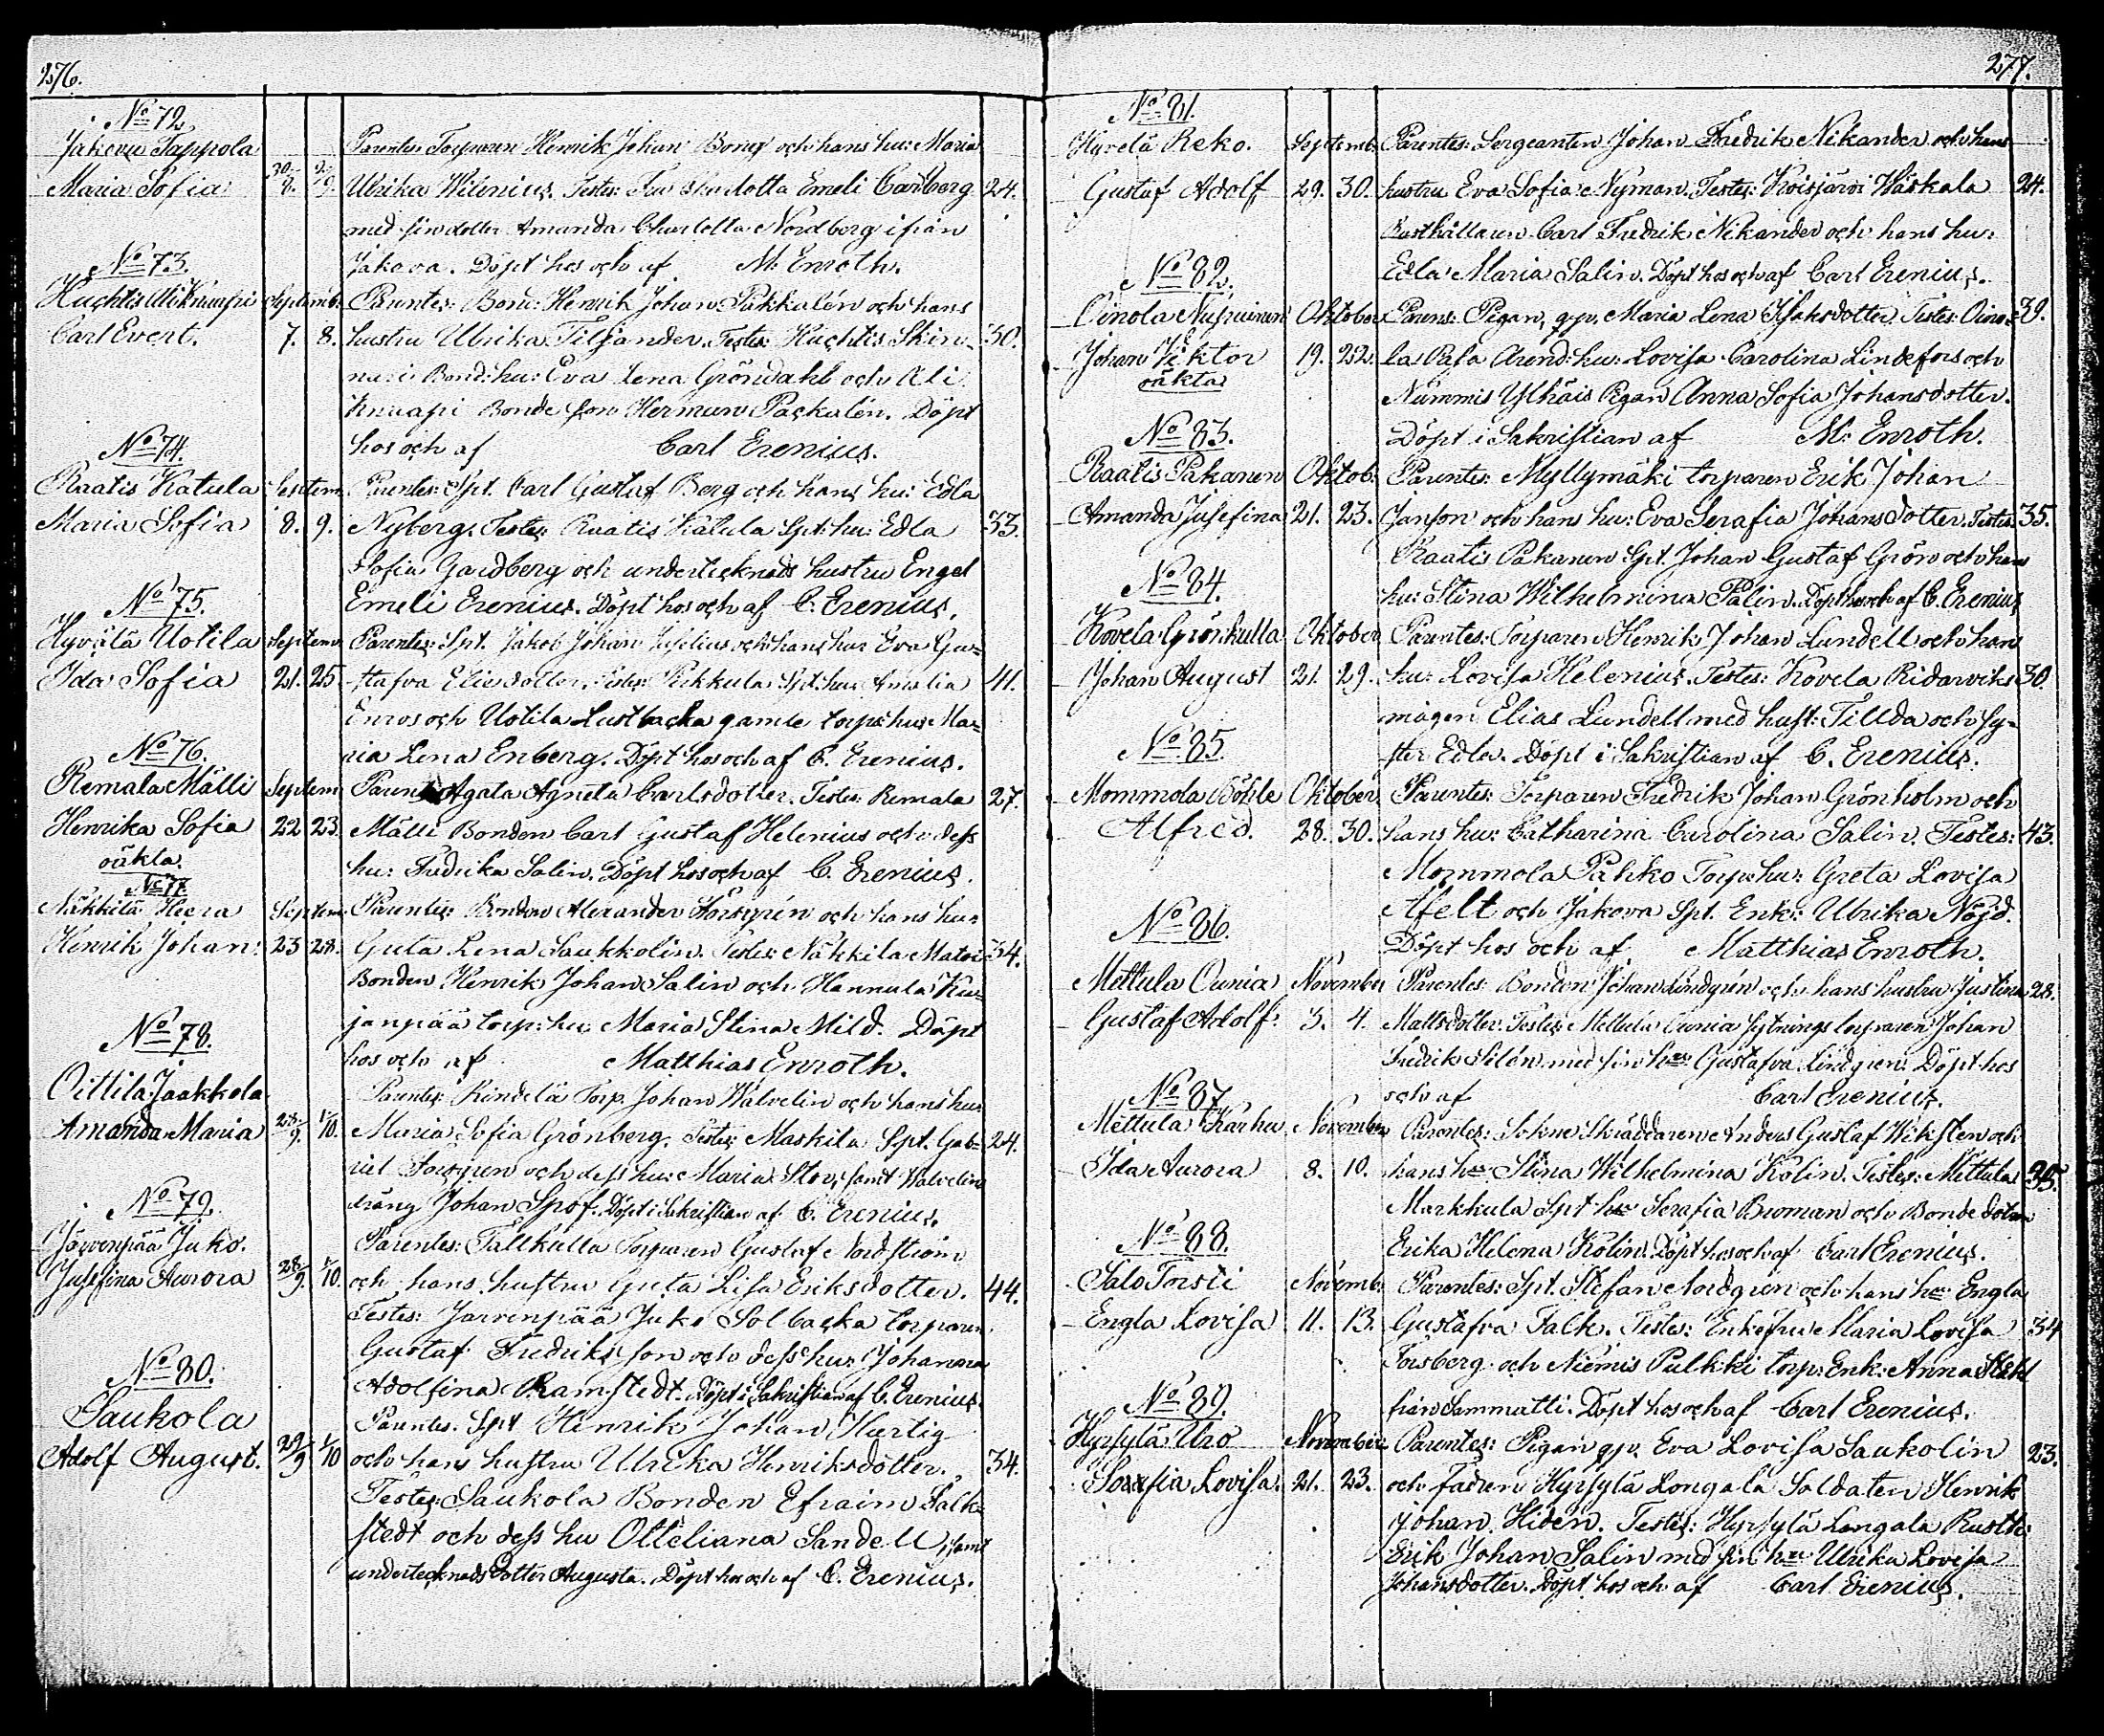 276.
No 72
Jakova Tappola Parentes: Torparen Henrik Johan Bong och hans hu: Maria
Maria Sofia 30/8. 2/9. Ulrika Wilenius. Testes: Emeli Cardberg 24.
med sin dotter Amanda Charlotta Nordberg ifrån
Jakova. Döpt hos och af M. Enroth.
No 73.
Huchtis Septemb. Parentes: Bond: Henrik Johan Pakkalén och hans
Carl Evert. 7. 8. hustru Ulrika Tiljander. Testes: Huchtis Skin- 30.
nari Bond: hu: Eva Lena Gröndahl och Ali
knuapi Bonde son Herman Packalén. Döpt
hos och af Carl Erenius.
No 74.
Raatis Katula Septem. Parentes: Spt. Carl Gustaf Berg och hans hu: Edla
Maria Sofia 8. 9. Nyberg. Testes: Raatis Katula Spt: hu: Edla 33.
Sofia Gardberg och undertecknads hustru Engel
Emeli Erenius. Döpt hos och af C. Erenius.
No 75.
Hyvelä Uotila Septem. Parentes: Spt. Jakob Johan och hans hu: Eva Gu-
Ida Sofia 21. 25. stafva Eliedotter. Testes: Pukkula Spt: hu: Amalia 41.
Enros och Uotila Lustbacka gamle torp: hu: Ma-
ria Lena Enberg. Döpt hos och af C. Erenius.
No 76.
Remala Mälli Septem. Parens Agata Agneta Carlsdotter. Testes: Remala 27.
Henrika Sofia 22 23. Mälli Bonden Carl Gustaf Helenius och dess
oäkta. hu: Fredrika Salin. Döpt hos och af C. Erenius.
No 77.
Näkkilä Heera Septem. Parentes: Bonden Alexander Forsgrén och hans hu:
Henrik Johan: 23 28. Greta Lena Saukkolin. Testes: Näkkilä Matoi 34.
Bonden Henrik Johan Salin och Hannula Kur-
janpää torp: hu: Maria Stina Mild. Döpt
hos och af Matthias Enroth.
No 78.
Oittila Jaakkola Parentes: Rindelä Torp. Johan Walvelin och hans hu:
Amanda Maria 28/9. 1/10. Maria Sofia Grönberg. Testes: Maskila Spt. Gab- 24.
riel Forsgren och dess hu: Maria Stor, samt Walvelin
dräng Johan Sprof. Döpt i Sakristian af C. Erenius.
No 79.
Järvenpää Juko. Parentes: Tallkulla Torparen Gustaf Nordström
Josefina Aurora 28/9. 1/10. och hans hustru Greta Lisa Eriksdotter. 44.
Testes: Jarvenpää Juko Solbacka torparen
Gustaf Fredriksson och dess hu: Johanna
Adolfina Ramstedt. Döpt i Sakristian af C. Erenius.
No 80.
Saukola Parentes. Spt Henrik Johan Hertig
Adolf August. 29/9 1/10 och hans hustru Ulrika Henriksdotter. 34.
Testes: Saukola Bonden Efraim Falk-
stedt och dess hu Otteliana Sandell, samt
undertecknads dotter Augusta. Döpt hos och af C. Erenius.
277.
No 81.
Hyvelä Reko. Septemb. Parentes: Sergeanten Johan Fredrik Nikander och hans
Gustaf Adolf 29. 30. hustru Eva Sofia Nyman. Testes: Koisjärvi Wäskala 24.
Rusthållaren Carl Fredrik Nikander och hans hu:
Edla Maria Salin. Döpt hos och af Carl Erenius.
No 82.
Oinola Nupuinen Oktober Parens: Pigan, qp. Maria Lena Isaksdotter. Testes: Oino- 39.
Johan Viktor 19. 22. la Pafa Arend: hu: Lovisa Carolina Lindefors och
oäkta Nummis Ylhäis Pigan Anna Sofia Johansdotter.
Döpt i Sakristian af M. Enroth.
No 83.
Raatis Pakanen Oktob: Parentes: Myllymäki torparen Erik Johan
Amanda Josefina 21. 23. Janson och hans hu: Eva Serafia Johansdotter. Testes: 35.
Raatis Pakanen Spt. Johan Gustaf Grön och hans
hu: Stina Wilhelmina Palin. Döpt hos och af C. Erenius
No 84.
Kovela Grönkulla Oktober Parentes: Torparen Henrik Johan Lundell och hans
Johan August 21. 29. hu: Lovisa Helenius. Testes: Kovela Ridarviks 30.
mågen Elias Lundell med hust: Tillda och sy-
ster Edla. Döpt i Sakristian af C. Erenius.
No 85.
Mommola Böhle Oktober Parentes: Torparen Fredrik Johan Grönholm och
Alfred. 28. 30. hans hu: Catharina Carolina Salin. Testes: 43.
Mommola Pahko Torp: hu: Greta Lovisa
Afelt och Jakova Spt. Enk: Ulrika Nöjd.
Döpt hos och af Matthias Enroth.
No 86.
Mettula Ounia November Parentes: Bonden Johan Lindgrén och hans hustru Justina 28.
Gustaf Adolf: 3. 4. Mattsdotter. Testes: Mettula Ounia Sytnings torparen Johan
Fredrik Silén med sin hu Gustafva Lindgren. Döpt hos
och af Carl Erenius.
No 87
Mettula Karhu November Parentes: Sokne Skräddaren Anders Gustaf Wiksten och
Ida Aurora 8. 10. hans hu Stina Wilhelmina Kolin. Testes: Mettula 35.
Markkula Spt hu Serafia Buman och Bonde dotter
Erika Helena Kolin. Döpt hos och af Carl Erenius.
No 88.
Salo Torsti Novemb. Parentes: Spt. Stefan Nordgren och hans hu: Engla
Engla Lovisa 11. 13. Gustafva Falk. Testes: Enkefru Maria Lovisa 34
Forsberg och Niemis Pulkki torp: Enk: Anna Ståhl
från Sammatti. Döpt hos och af Carl Erenius.
No 89.
Hyrsylä Uro November Parentes: Pigan qp. Eva Lovisa Saukolin 23.
Serafia Lovisa. 21. 23. och fadren Hyrsylä Longala Soldaten Henrik
Johan Hidén. Testes: Hyrsylä Longala Rusth:
Erik Johan Salin med sin hu Ulrika Lovisa
Johansdotter. Döpt hos och af Carl Erenius.